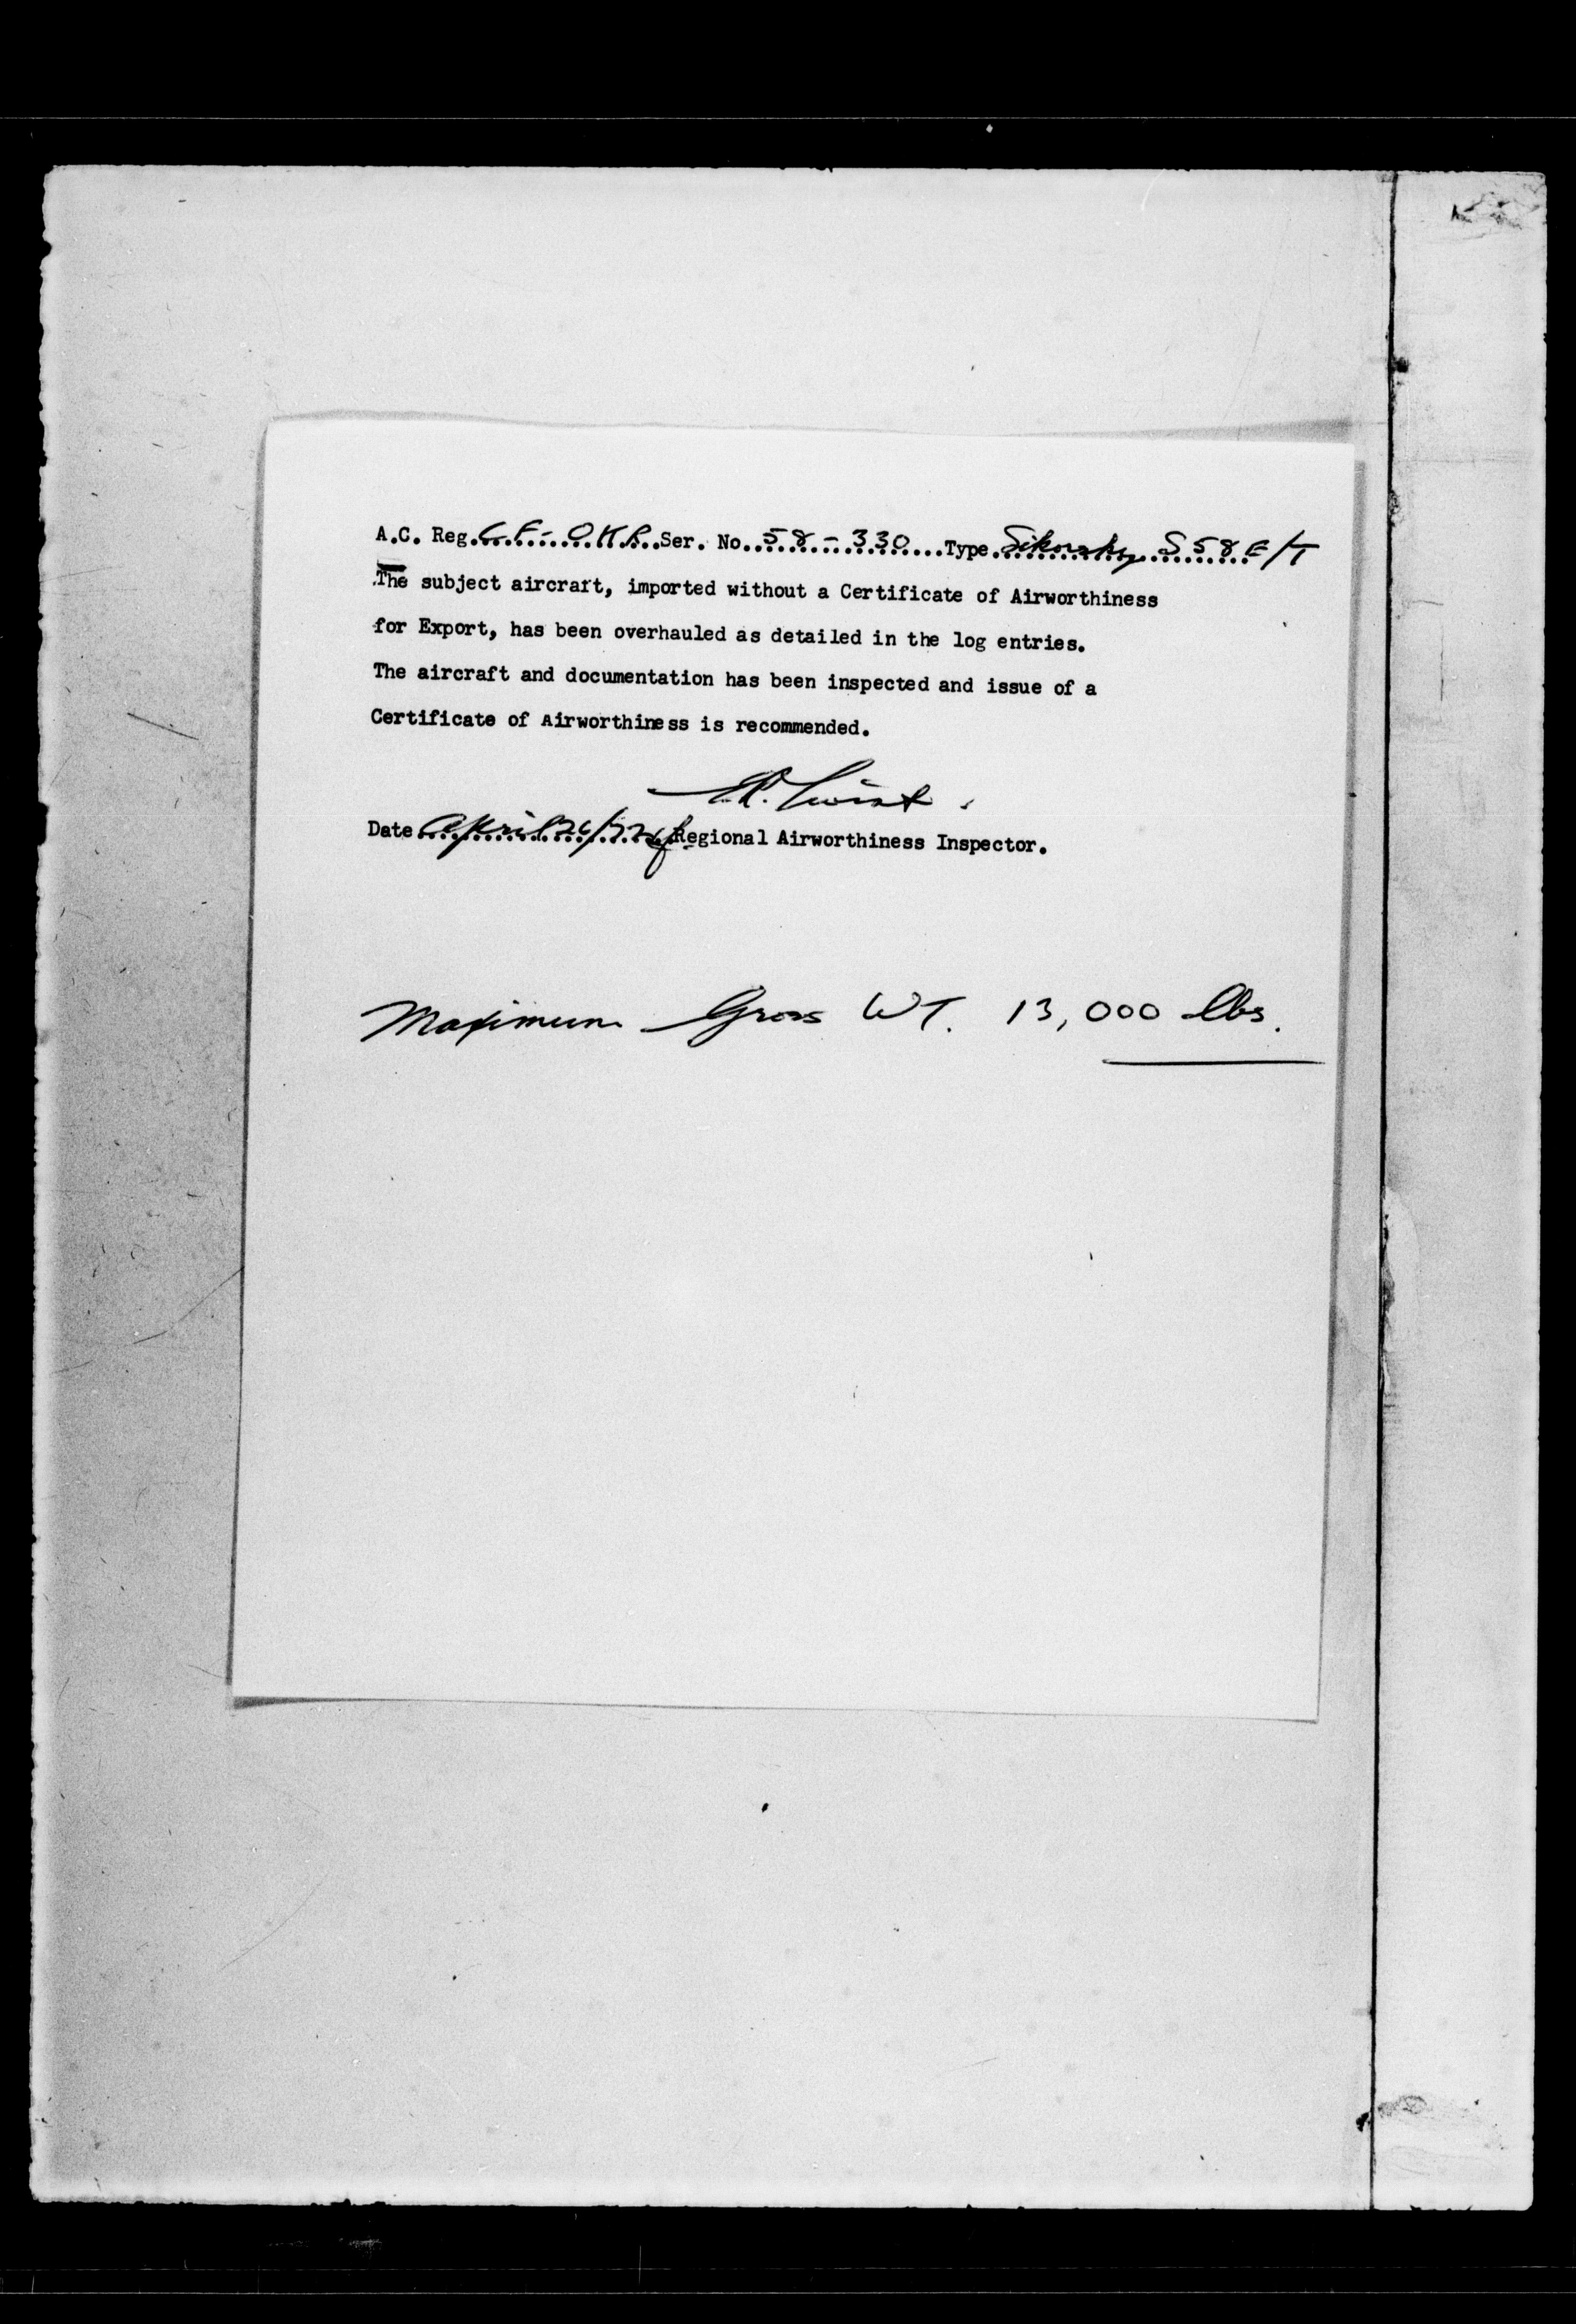 A.C. Reg. CF-OKR Ser. No. 58-330 Type Sikorsky S58E/T
The subject aircraft, imported without a Certificate of Airworthiness
for Export, has been overhauled as detailed in the log entries.
The aircraft and documentation has been inspected and issue of a
Certificate of Airworthiness is recommended.
Date April 26/72 Regional Airworthiness Inspector.
Maximum Gross WT. 13,000 lbs.